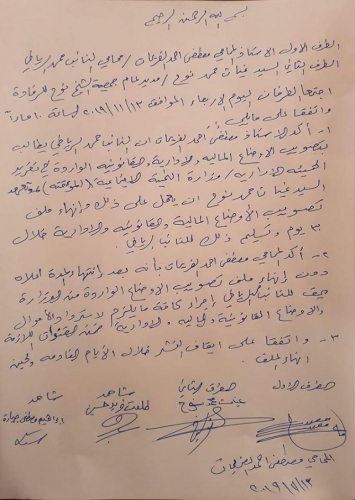 بسم الله الرحمن الرحيم
الطرف الاول الاستاذ المحامي مصطفى احمد الفريحات / محامي النائب محمد الرياطي
الطرف الثاني السيد غياث محمد نوح / مدير عام جمعية الشيخ نوح للرفادة
اجتمعا الطرفان اليوم الاربعاء الموافق ٢٠١٩/١١/١٣ الساعة ١٠ مساءً
واتفقا على مايلي :
١- أكد الاستاذ مصطفى احمد الفريحات ان النائب محمد الرياطي يطالب
تصويب الاوضاع المالية والادارية والقانونية الواردة في تقرير
الهيئة الادارية / وزارة التنمية الاجتماعية (المؤقته) وتعهد
السيد غياث محمد نوح ان يعمل على ذلك وانهاء ملف
تصويب الأوضاع المالية والقانونية والادارية خلال
٣٠ يوم وتسليم ذلك للنائب الرياطي.
٢- أكد المحامي مصطفى احمد الفريحات بأنه بعد انتهاء المدة اعلاه
دون إنهاء ملف تصويب الاوضاع الواردة من الوزارة
يحق للنائب الرياطي إجراء كافة ما يلزم لاسترداد الأموال
والاوضاع القانونية والمالية والادارية ضمن القنوات اللازمة
٣- واتفقا على ايقاف النشر خلال الأيام القادمه ولحين
انهاء الملف.
الطرف الأول الطرف الثاني شاهد شاهد
غياث محمد نوح طلعت ابراهيم مصطفى
المحامي مصطفى احمد الفريحات
٢٠١٩/١١/١٣